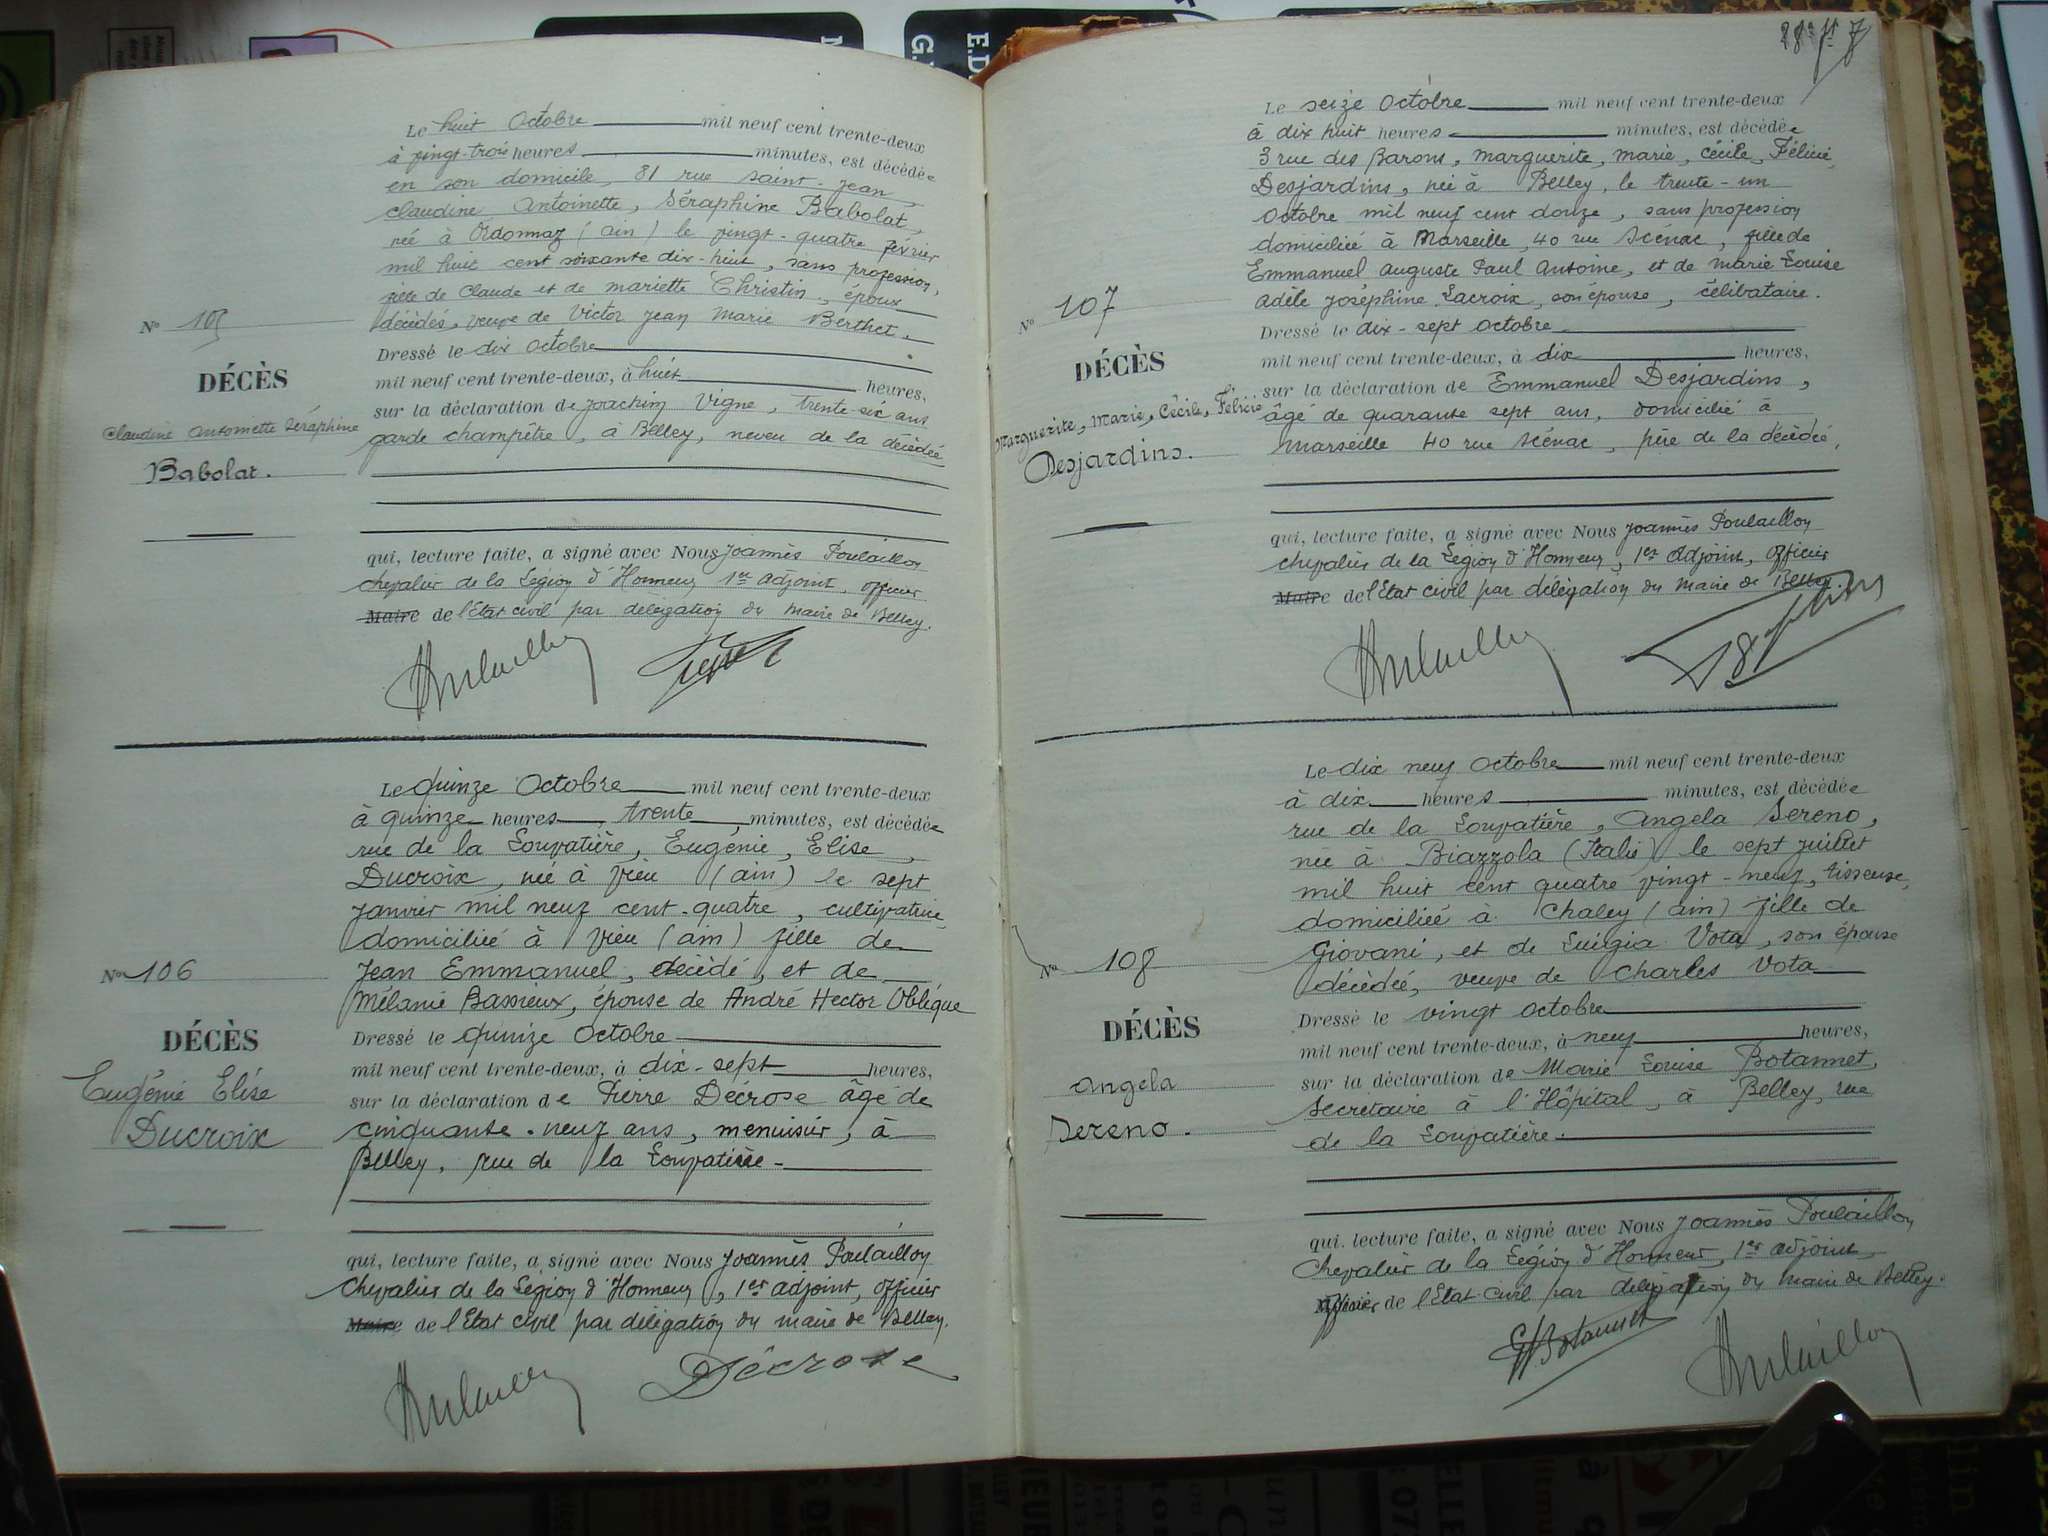 Le huit Octobre mil neuf cent trente-deux
à vingt-trois heures minutes, est décédée
en son domicile, 81 rue saint-Jean
Claudine Antoinette, Séraphine Babolat,
née à Ordonnaz (ain) le vingt-quatre février
mil huit cent soixante dix-huit, sans profession,
fille de Claude et de mariette Christin, époux
décédés, veuve de Victor Jean Marie Berthet.
Dressé le dix octobre
mil neuf cent trente-deux, à huit heures,
sur la déclaration de Joachim Vigne, trente-six ans
garde champêtre, à Belley, neveu de la décédée
qui, lecture faite, a signé avec Nous Joannès Poulaillon
chevalier de la Légion d'Honneur 1er adjoint, officier
Maire de l'Etat civil par délégation du maire de Belley.
No 105
DÉCÈS
Claudine Antoinette Séraphine
Babolat.
Le quinze Octobre mil neuf cent trente-deux
à quinze heures, trente minutes, est décédée
rue de la Louvatière, Eugénie, Elise,
Ducroix, née à Vieu (ain) le sept
janvier mil neuf cent-quatre, cultivatrice
domiciliée à Vieu (ain) fille de
Jean Emmanuel, décédé, et de
Mélanie Bassieux, épouse de André Hector Oblique
Dressé le quinze Octobre
mil neuf cent trente-deux, à dix-sept heures,
sur la déclaration de Pierre Décrose âgé de
cinquante-neuf ans, menuisier, à
Belley, rue de la Louvatière-
qui, lecture faite, a signé avec Nous Joannès Poulaillon
Chevalier de la Légion d'Honneur, 1er adjoint, officier
Maire de l'Etat civil par délégation du maire de Belley.
Décrose
No 106
DÉCÈS
Eugénie Elise
Ducroix
Le seize Octobre mil neuf cent trente-deux
à dix huit heures minutes, est décédée
3 rue des Barons, marguerite, marie, cécile, Félicie
Desjardins, née à Belley, le trente-un
Octobre mil neuf cent douze, sans profession
domiciliée à Marseille, 40 rue Scénac, fille de
Emmanuel Auguste Paul Antoine, et de Marie Louise
Adèle Joséphine Lacroix, son épouse, célibataire.
Dressé le dix-sept octobre
mil neuf cent trente-deux, à dix heures,
sur la déclaration de Emmanuel Desjardins,
âgé de quarante sept ans, domicilié à
Marseille 40 rue Scénac, père de la décédée,
qui, lecture faite, a signé avec Nous Joannès Poulaillon
chevalier de la Légion d'Honneur, 1er Adjoint, officier
Maire de l'Etat civil par délégation du maire de Belley.
No 107
DÉCÈS
Marguerite, Marie, Cécile, Félicie
Desjardins.
Le dix neuf Octobre mil neuf cent trente-deux
à dix heures minutes, est décédée
rue de la Louvatière, Angela Sereno,
née à Biazzola (Italie) le sept juillet
mil huit cent quatre vingt-neuf, tisseuse,
domiciliée à Chaley (ain) fille de
Giovani, et de Luigia Vota, son épouse
décédée, veuve de Charles Vota
Dressé le vingt octobre
mil neuf cent trente-deux, à neuf heures,
sur la déclaration de Marie Louise Botannet,
secrétaire à l'Hôpital, à Belley, rue
de la Louvatière.
qui, lecture faite, a signé avec Nous Joannès Poulaillon
Chevalier de la Légion d'Honneur, 1er adjoint
officier de l'Etat-civil par délégation du maire de Belley.
No 108
DÉCÈS
Angela
Sereno.